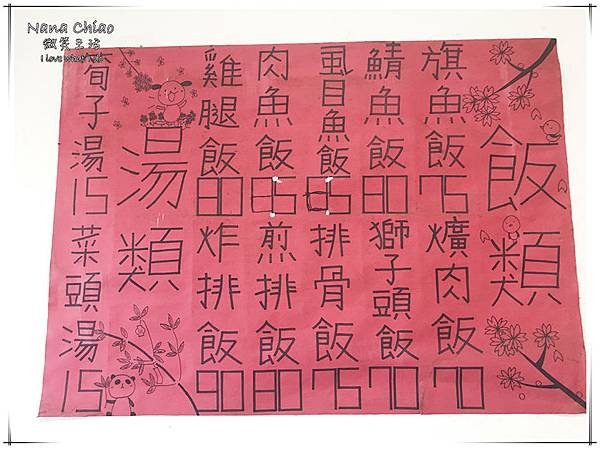 Nana Chiao
飯類
旗魚飯75
爌肉飯70
鯖魚飯80
獅子頭飯70
虱目魚飯65
排骨飯75
肉魚飯65
煎排飯80
雞腿飯80
炸排飯90
湯類
筍子湯15
菜頭湯15